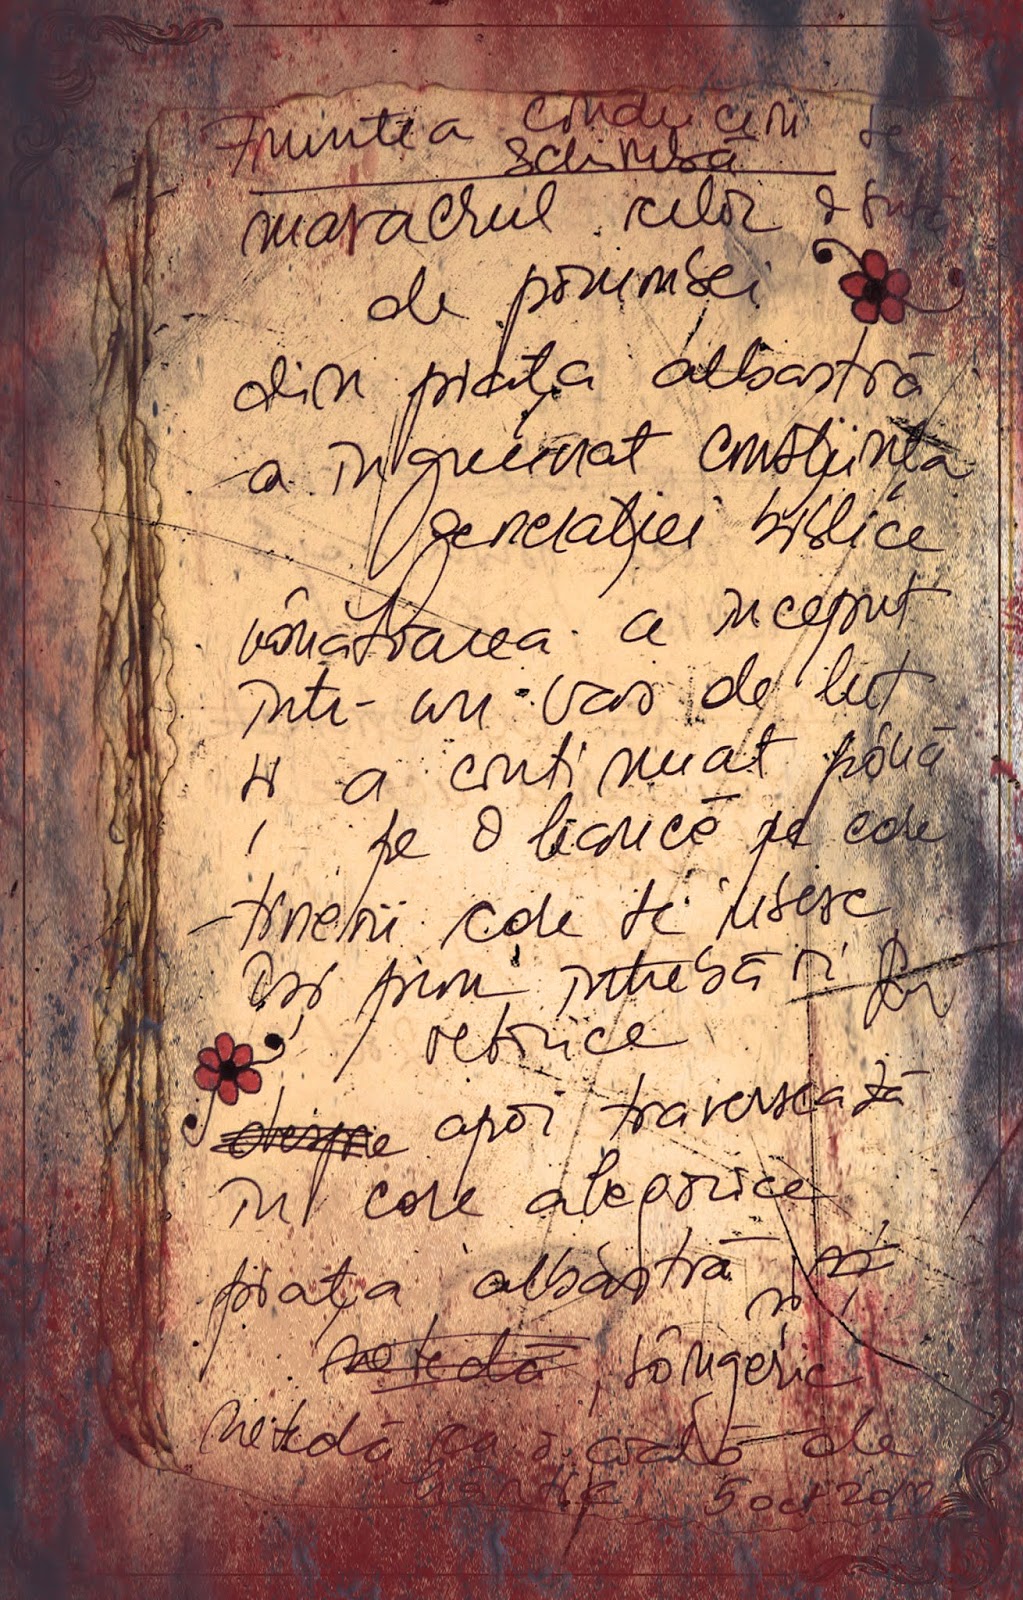 Fruntea conducerii se
schimbă
masacrul celor o sută
de porumbei
din piața albastră
a îngreunat conștiința
generației biblice
vânătoarea a început
într-un vas de lut
și a continuat până
pe o bancă pe care
tinerii care se iubesc
își pun întrebări
retorice
despre apoi traversează
în care alegorice
piața albastră și
netedă și sângerie
netedă ca o coală de
hârtie 5 oct 2010